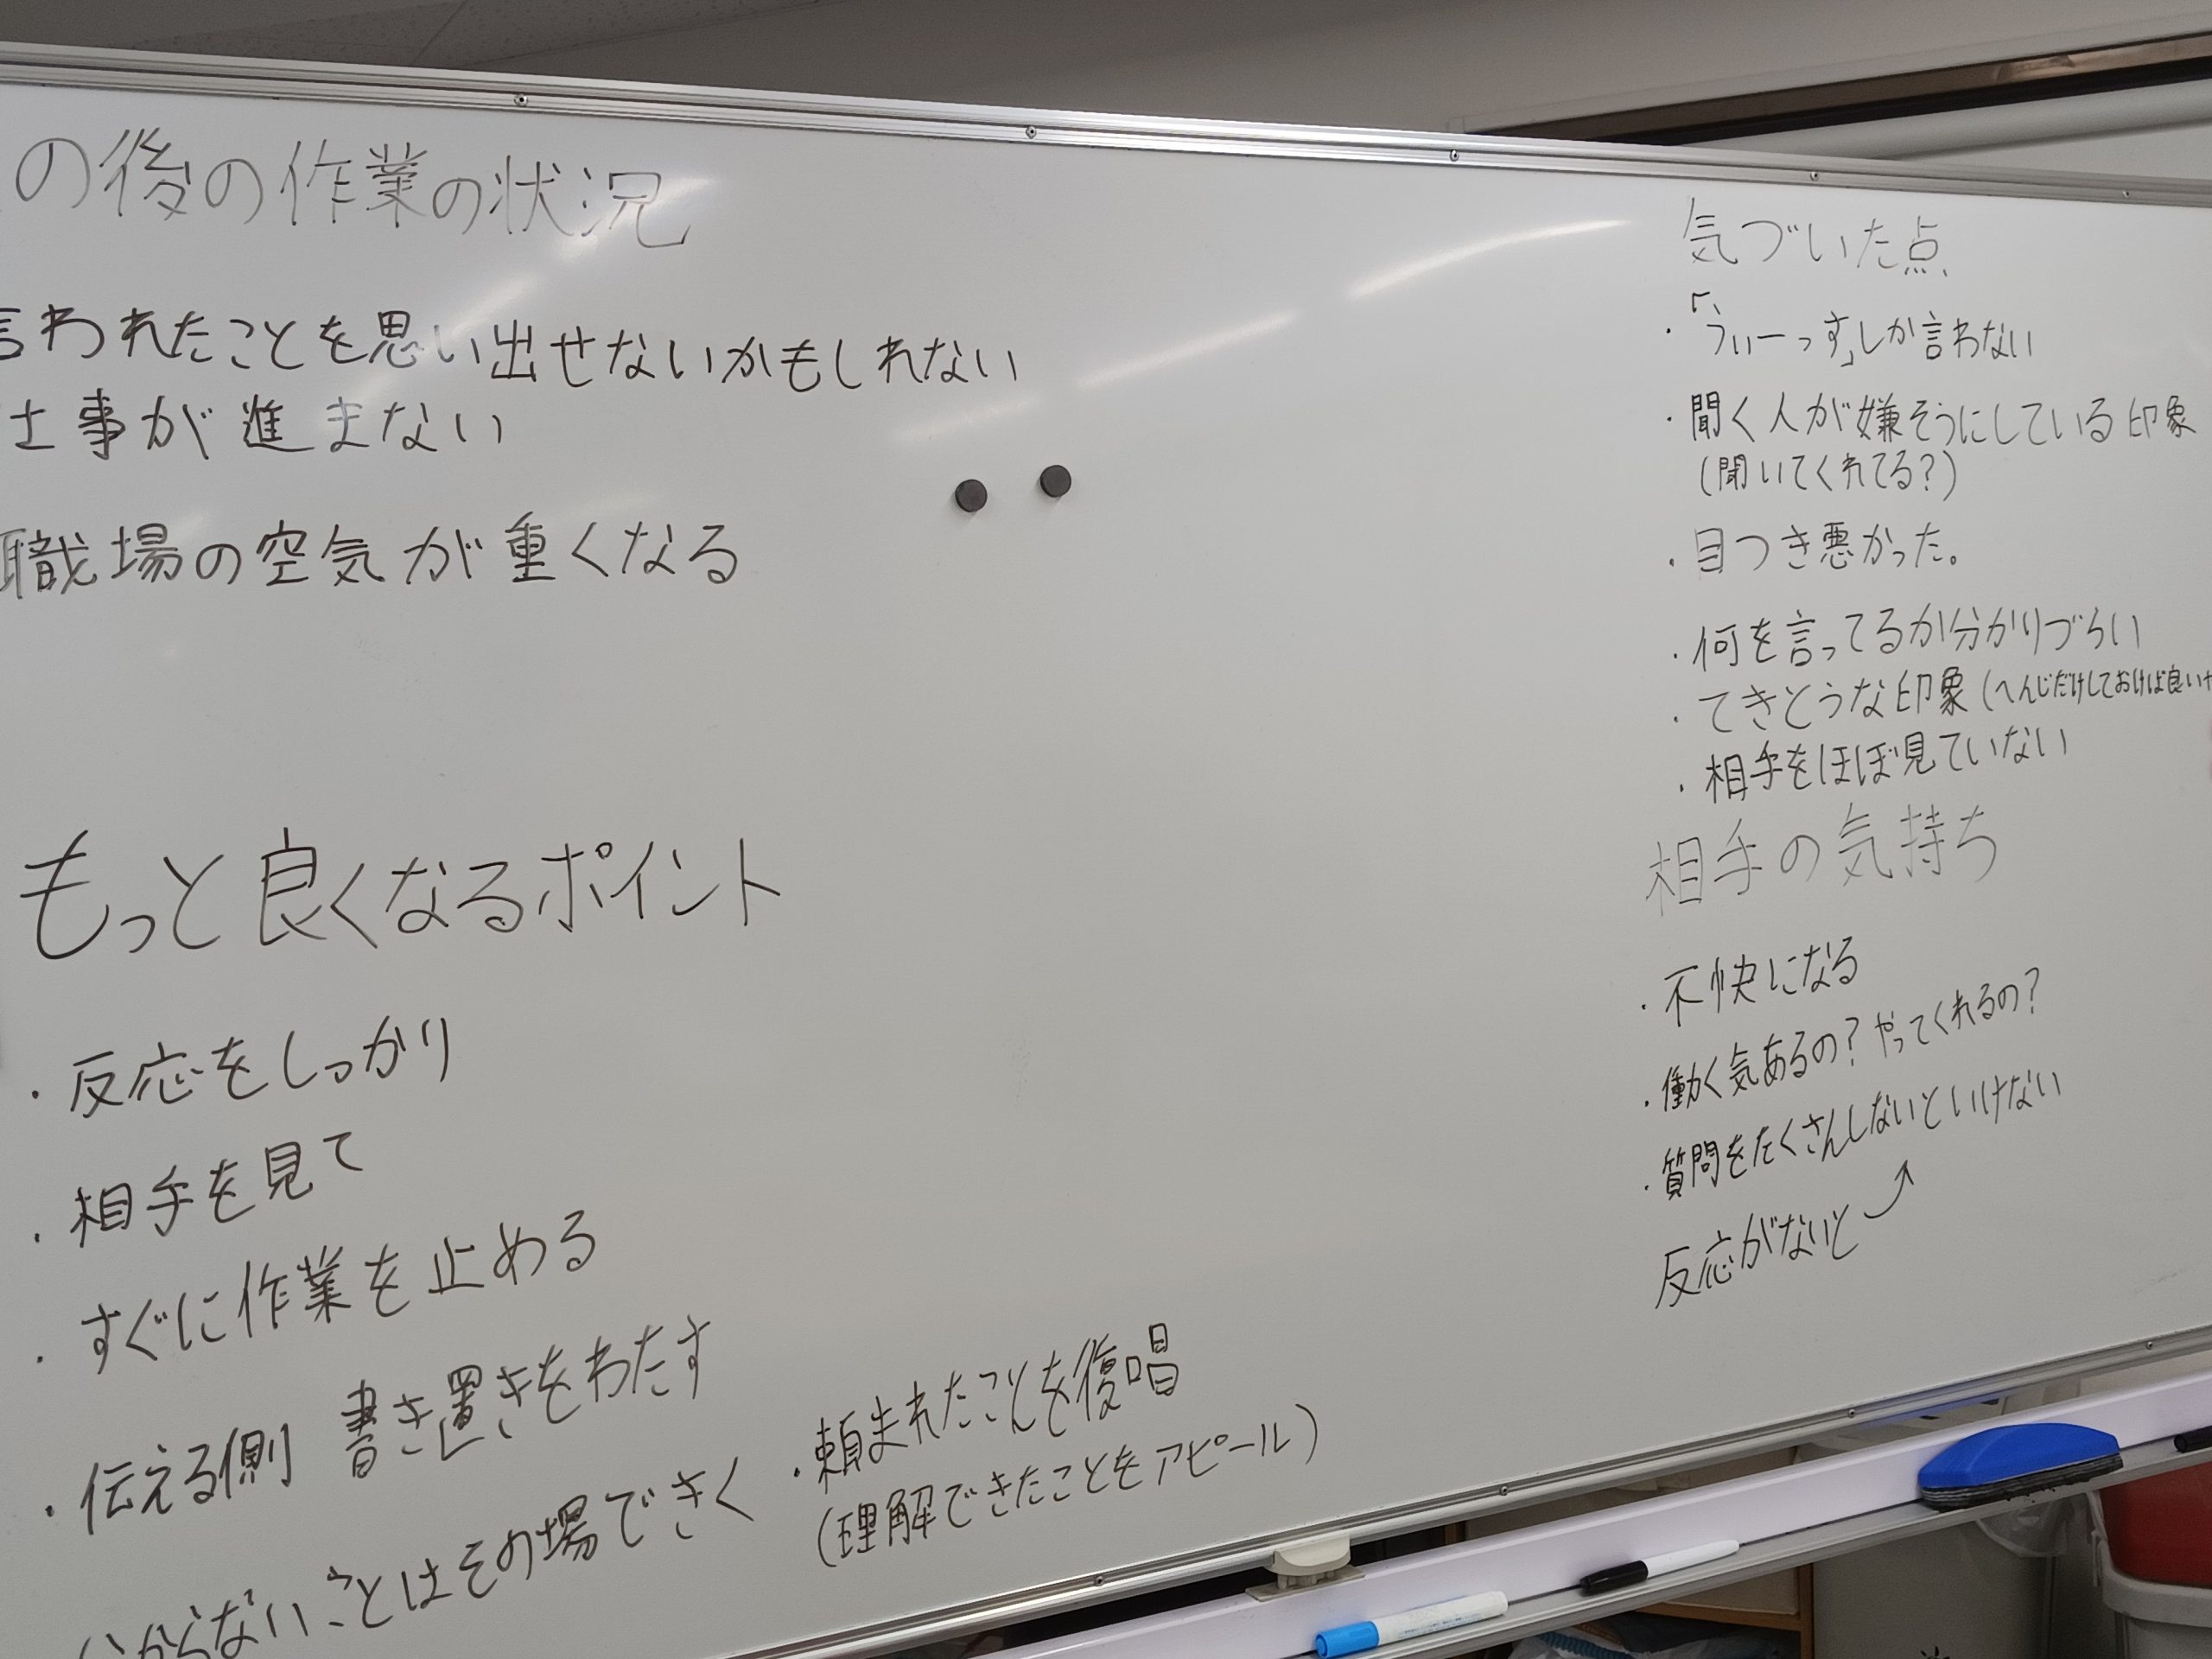 の後の作業の状況
言われたことを思い出せないかもしれない
仕事が進まない
職場の空気が重くなる
もっと良くなるポイント
・反応をしっかり
・相手を見て
・すぐに作業を止める
・伝える側 書き置きをわたす
分からないことはその場できく
・頼まれたことを復唱
(理解できたこともアピール)
気づいた点
・「うぃーっす」しか言わない
・聞く人が嫌そうにしている印象
(聞いてくれてる?)
・目つき悪かった。
・何を言ってるか分かりづらい
・てきとうな印象(へんじだけしておけば良いや
・相手をほぼ見ていない
相手の気持ち
・不快になる
・働く気あるの?やってくれるの?
・質問をたくさんしないといけない
反応がないと